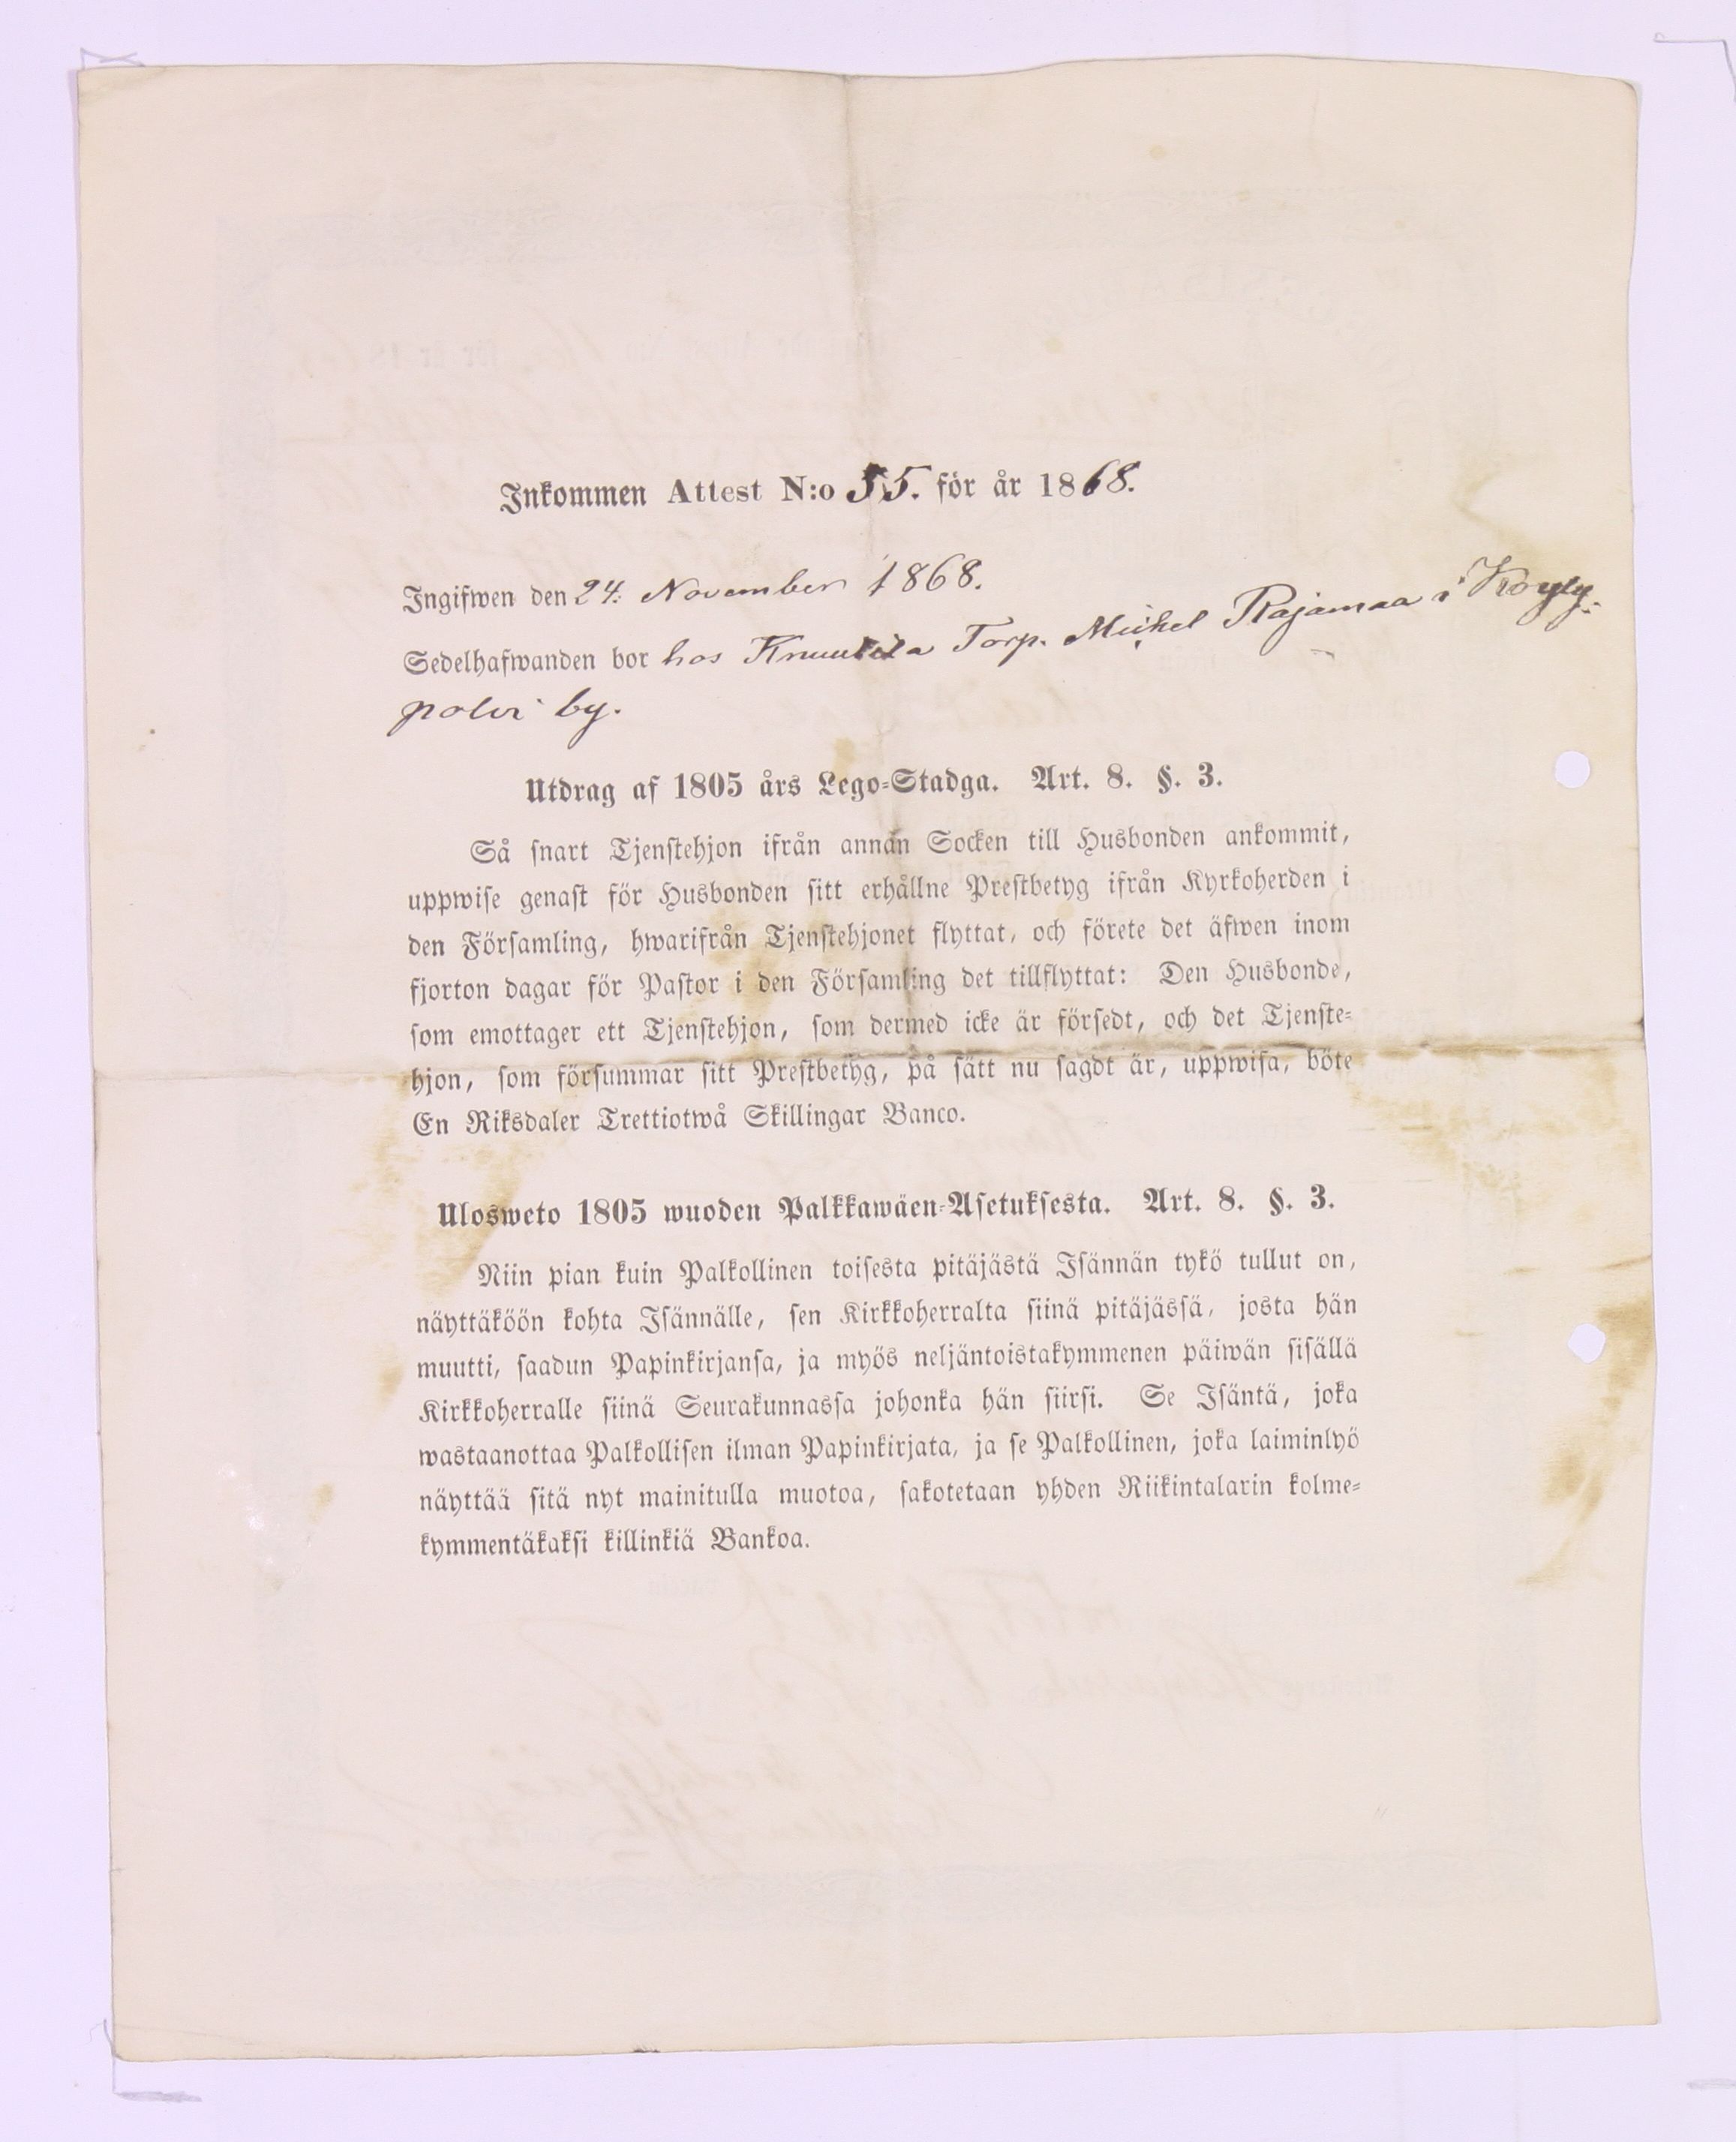 Inkommen Attest N:o 55. för år 1868.
Ingifwen den 24. November 1868.
Sedelhafwanden bor hos Knuutila Torp. Michel Rajamaa i Köyly-
polvi by.
Utdrag af 1805 års Lego-Stadga. Art. 8. §. 3.
Så snart Tjenstehjon ifrån annan Socken till Husbonden ankommit,
uppwise genast för Husbonden sitt erhållne Prestbetyg ifrån Kyrkoherden i
den Församling, hwarifrån Tjenstehjonet flyttat, och förete det äfwen inom
fjorton dagar för Pastor i den Församling det tillflyttat: Den Husbonde,
som emottager ett Tjenstehjon, som dermed icke är försedt, och det Tjenste-
hjon, som försummar sitt Prestbetyg, på sätt nu sagdt är, uppwisa, böte
En Riksdaler Trettiotwå Skillingar Banco.
Ulosweto 1805 wuoden Palkkawäen-Asetuksesta. Art. 8. §. 3.
Niin pian kuin Palkollinen toisesta pitäjästä Isännän tykö tullut on,
näyttäköön kohta Isännälle, sen Kirkkoherralta siinä pitäjässä, josta hän
muutti, saadun Papinkirjansa, ja myös neljäntoistakymmenen päiwän sisällä
Kirkkoherralle siinä Seurakunnassa johonka hän siirsi. Se Isäntä, joka
wastaanottaa Palkollisen ilman Papinkirjata, ja se Palkollinen, joka laiminlyö
näyttää sitä nyt mainitulla muotoa, sakotetaan yhden Riikintalarin kolme-
kymmentäkaksi killinkiä Bankoa.